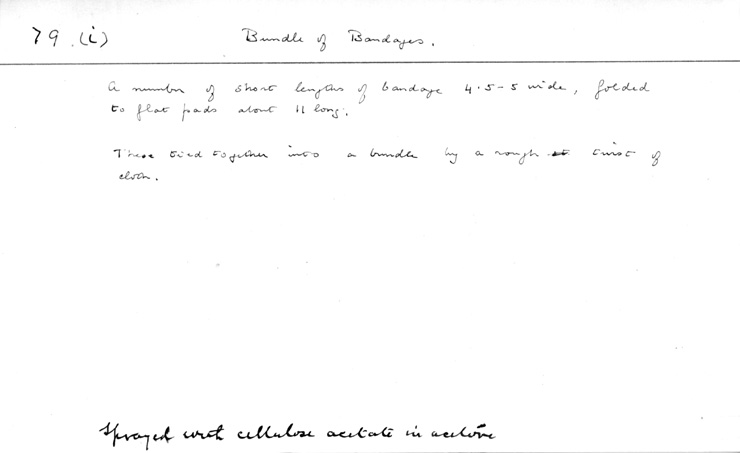 79.(i) Bundle of Bandages.
A number of short lengths of bandage 4.5-5 wide, folded
to flat pads about 11 long.
These tied together into a bundle by a rough twist of
cloth.
Sprayed with cellulose acetate in acetone